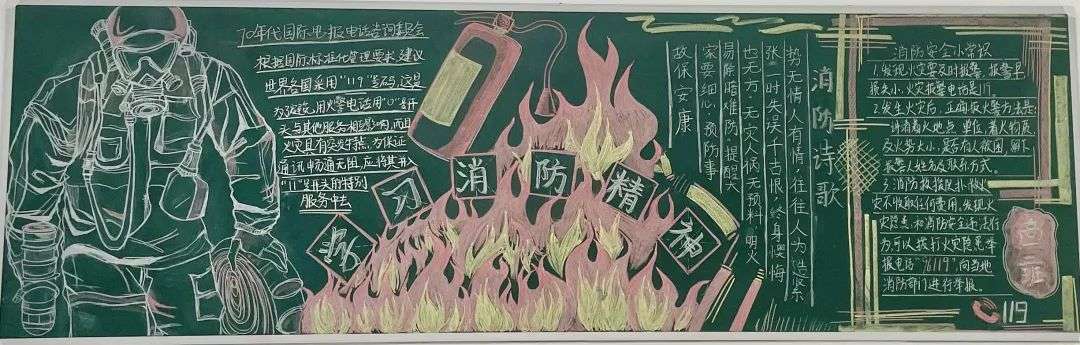 70年代国际电报电话咨询委员会
根据国际标准化管理要求建议
世界各国采用"119"号码,这是
火灾具有突发特点,为保证
通讯畅通无阻,应将其并入
"11"号开头的特别
服务中去
学习消防精神
消防诗歌
势无情人有情,往往人为造祭
张一时失误千古恨,终身懊悔
也无方,无灾人祸无预料,明火
易除暗难防,提醒大
家要细心,预防事
故保安康
消防安全小常识
1.发现火灾要及时报警,报警早
损失小,火灾报警电话是119.
2.发生火灾后,正确报火警方法是:
讲清着火地点 单位 着火物质
及火势大小,是否有人被困 留下
报警人姓名及联系方式.
3.消防救援队扑救火
灾不收取任何费用,发现火
灾隐患和消防安全违法行
为可以拨打火灾隐患举
报电话"96119",向当地
消防部门进行举报.
119